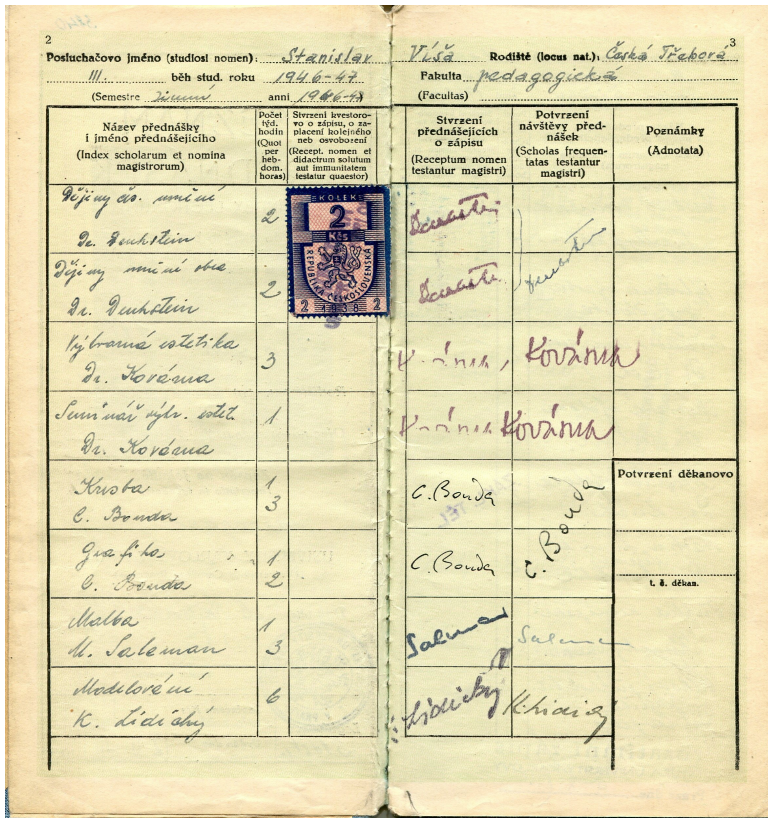 2
3
Posluchačovo jméno (studiosi nomen): Stanislav Víša Rodiště (locus nat.): Česká Třebová
III. běh stud. roku 1946-47 Fakulta pedagogická
(Semestre zimní anni 1946-47 (Facultas)
Název přednášky
i jméno přednášejícího
(Index scholarum et nomina
magistrorum)
Počet
týd.
hodin
(Quot
per
heb-
dom.
horas)
Stvrzení kvestoro-
vo o zápisu, o za-
placení kolejného
neb osvobození
(Recept. nomen et
didactrum solutum
aut immunitatem
testatur quaestor)
Stvrzení
přednášejících
o zápisu
(Receptum nomen
testantur magistri)
Potvrzení
návštěvy před-
nášek
(Scholas frequen-
tatas testantur
magistri)
Poznámky
(Adnotata)
Dějiny čs. umění
Dr. Denkstein
2
KOLEK
2
Kčs
REPUBLIKA ČESKOSLOVENSKÁ
2 1938 2
Dějiny umění
Dr. Denkstein
2
Výtvarná estetika
Dr. Kovárna
3
Kovárna
Seminář výtv. estet.
Dr. Kovárna
1
Kovárna
Kresba
C. Bouda
1
3
C. Bouda
C. Bouda
Potvrzení děkanovo
t. č. děkan.
Grafika
C. Bouda
1
2
C. Bouda
C. Bouda
Malba
M. Salcman
1
3
Salcman
Salcman
Modelování
K. Lidický
6
Lidický
K. Lidický